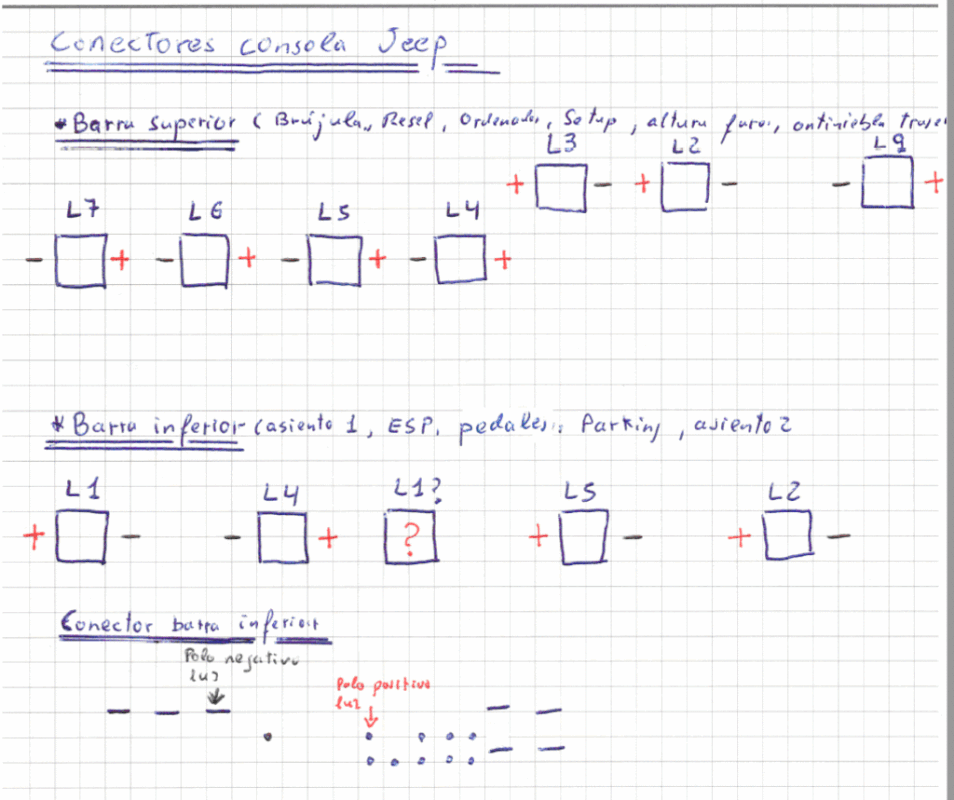 Conectores consola Jeep
* Barra superior ( Brújula, Reset, Ordenador, Setup, altura faros, antiniebla
L3 L2 L9
+ - + - - +
L7 L6 L5 L4
- + - + - + - +
* Barra inferior (asiento 1, ESP, pedales, Parking, asiento 2
L1 L4 L1? L5 L2
+ - - + ? + - + -
Conector barra inferior
Polo negativo
luz
Polo positivo
luz